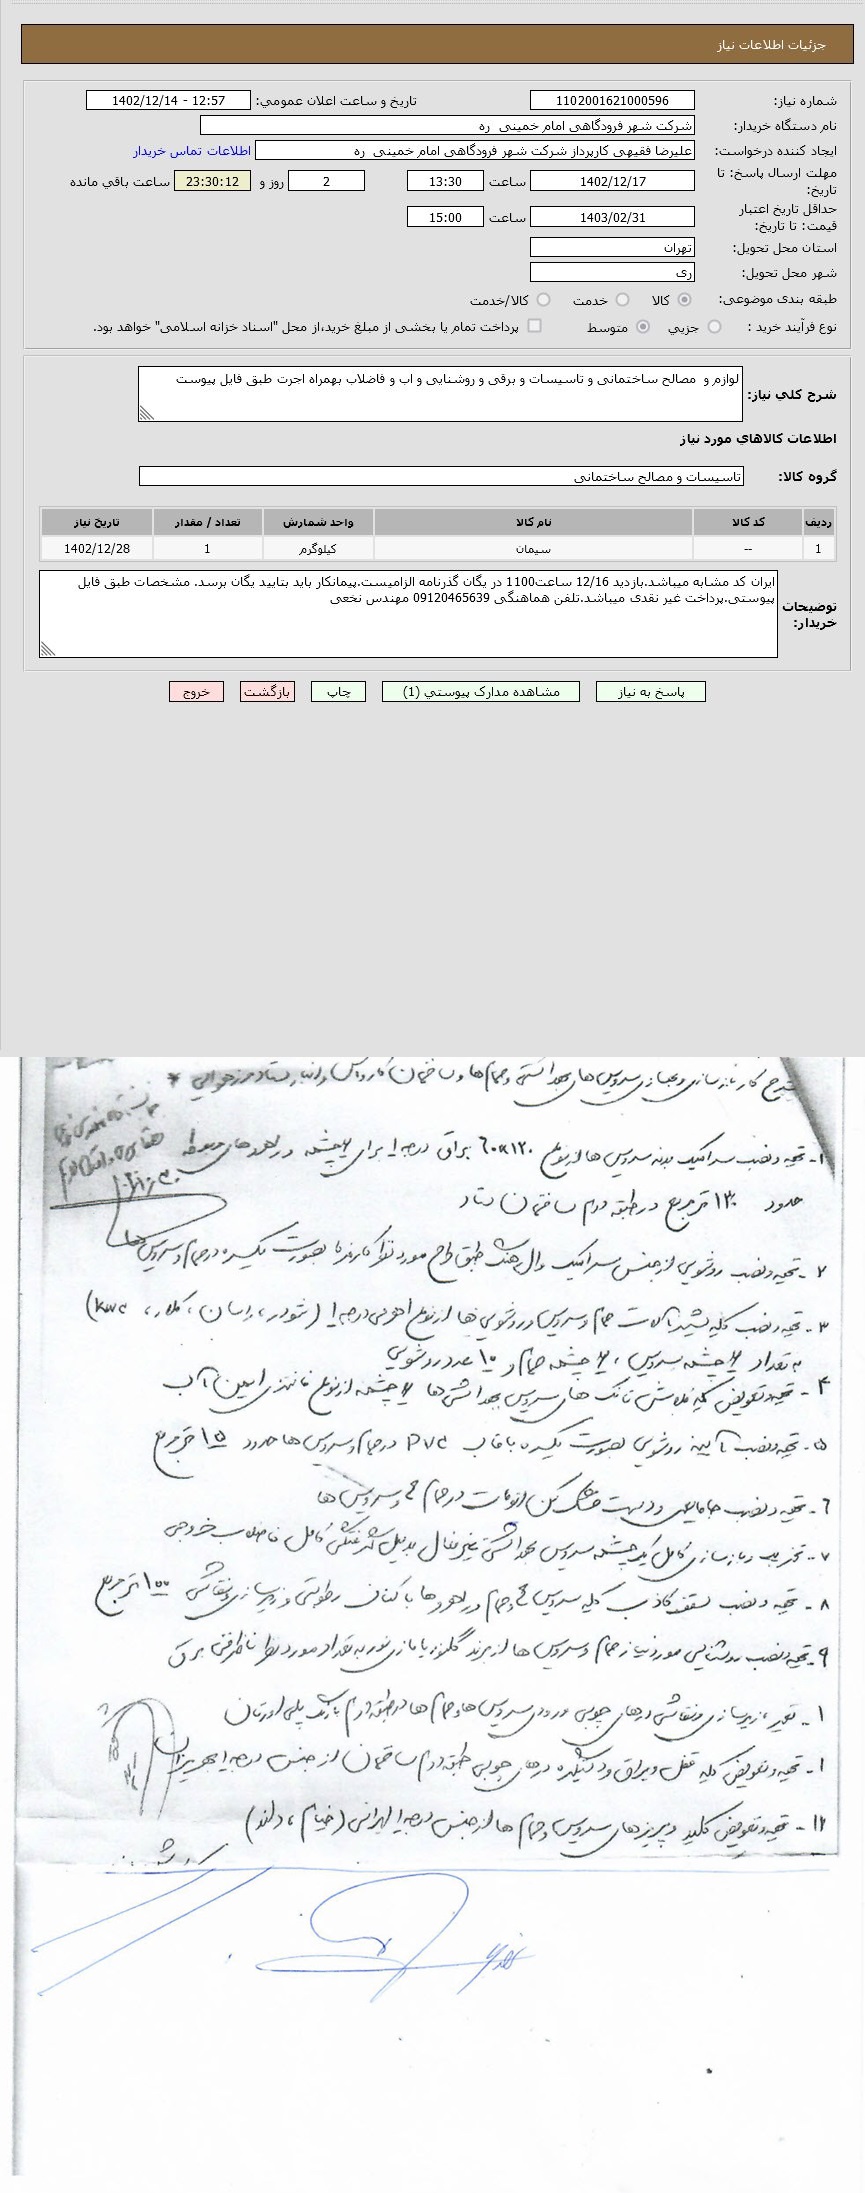 جزئیات اطلاعات نیاز
شماره نیاز: 1102001621000596 تاریخ و ساعت اعلان عمومي: 1402/12/14 - 12:57
نام دستگاه خریدار: شرکت شهر فرودگاهی امام خمینی ره
ایجاد کننده درخواست: علیرضا فقیهی کارپرداز شرکت شهر فرودگاهی امام خمینی ره اطلاعات تماس خریدار
مهلت ارسال پاسخ: تا تاریخ: 1402/12/17 ساعت 13:30 2 روز و 23:30:12 ساعت باقي مانده
حداقل تاریخ اعتبار قیمت: تا تاریخ: 1403/02/31 ساعت 15:00
استان محل تحویل: تهران
شهر محل تحویل: ری
طبقه بندی موضوعی: کالا خدمت کالا/خدمت
نوع فرآیند خرید : جزیي متوسط پرداخت تمام یا بخشی از مبلغ خرید،از محل "اسناد خزانه اسلامی" خواهد بود.
شرح کلي نیاز: لوازم و مصالح ساختمانی و تاسیسات و برقی و روشنایی و اب و فاضلاب بهمراه اجرت طبق فایل پیوست
اطلاعات کالاهاي مورد نیاز
گروه کالا: تاسیسات و مصالح ساختمانی
ردیف کد کالا نام کالا واحد شمارش تعداد / مقدار تاریخ نیاز
1 -- سیمان کیلوگرم 1 1402/12/28
توضیحات خریدار: ایران کد مشابه میباشد.بازدید 12/16 ساعت1100 در یگان گذرنامه الزامیست.پیمانکار باید بتایید یگان برسد. مشخصات طبق فایل
پیوستی.پرداخت غیر نقدی میباشد.تلفن هماهنگی 09120465639 مهندس نخعی
پاسخ به نیاز مشاهده مدارک پیوستي (1) چاپ بازگشت خروج
شرح کار بازسازی و بهسازی سرویس های بهداشتی و حمام ها و ساختمان
۱- تهیه و نصب سرامیک بدنه سرویس ها از نوع ۱۲۰*۶۰ براق درجه ۱ برای ۴ چشمه در راهروهای مربوطه
حدود ۱۳۰ متر مربع در طبقه دوم ساختمان ستاد
۲- تهیه و نصب روشویی از جنس سرامیک وال هنگ طبق طرح مورد نظر کارفرما بصورت یکسره در حمام و سرویس ها
۳- تهیه و نصب کلیه شیرآلات حمام و سرویس و روشویی ها از نوع اهرمی درجه ۱ (شودر، راسان، کلار، kwc)
به تعداد ۴ چشمه سرویس، ۴ چشمه حمام و ۱۰ عدد روشویی
۴- تهیه و تعویض کلیه فلاش تانک های سرویس بهداشتی ها ۴ چشمه از نوع
۵- تهیه و نصب آیینه روشویی بصورت یکسره با قاب PVC در حمام و سرویس ها حدود ۱۵ متر مربع
۶- تهیه و نصب جامایعی و دست خشک کن اتومات در حمام و سرویس ها
۷- تخریب و بازسازی کامل یک چشمه سرویس بهداشتی غیرفعال بدلیل گرفتگی کامل فاضلاب خروجی
۸- تهیه و نصب سقف کاذب کلیه سرویس و حمام و راهروها با کناف رطوبتی و زیرسازی و نقاشی ۱۰۰ متر مربع
۹- تهیه و نصب روشنایی مورد نیاز حمام و سرویس ها از برند گلنور یا مازی نور به تعداد مورد نظر ناظر فنی برق
۱- تعمیر، زیرسازی و نقاشی درهای چوبی ورودی سرویس ها و حمام ها در طبقه دوم با رنگ پلی اورتان
۱- تهیه و تعویض کلیه قفل و یراق و دستگیره درهای چوبی طبقه دوم ساختمان از جنس درجه ۱ بهریزان
۱۲- تهیه و تعویض کلید و پریزهای سرویس و حمام ها از جنس درجه ۱ ایرانی (خیام، دلند)